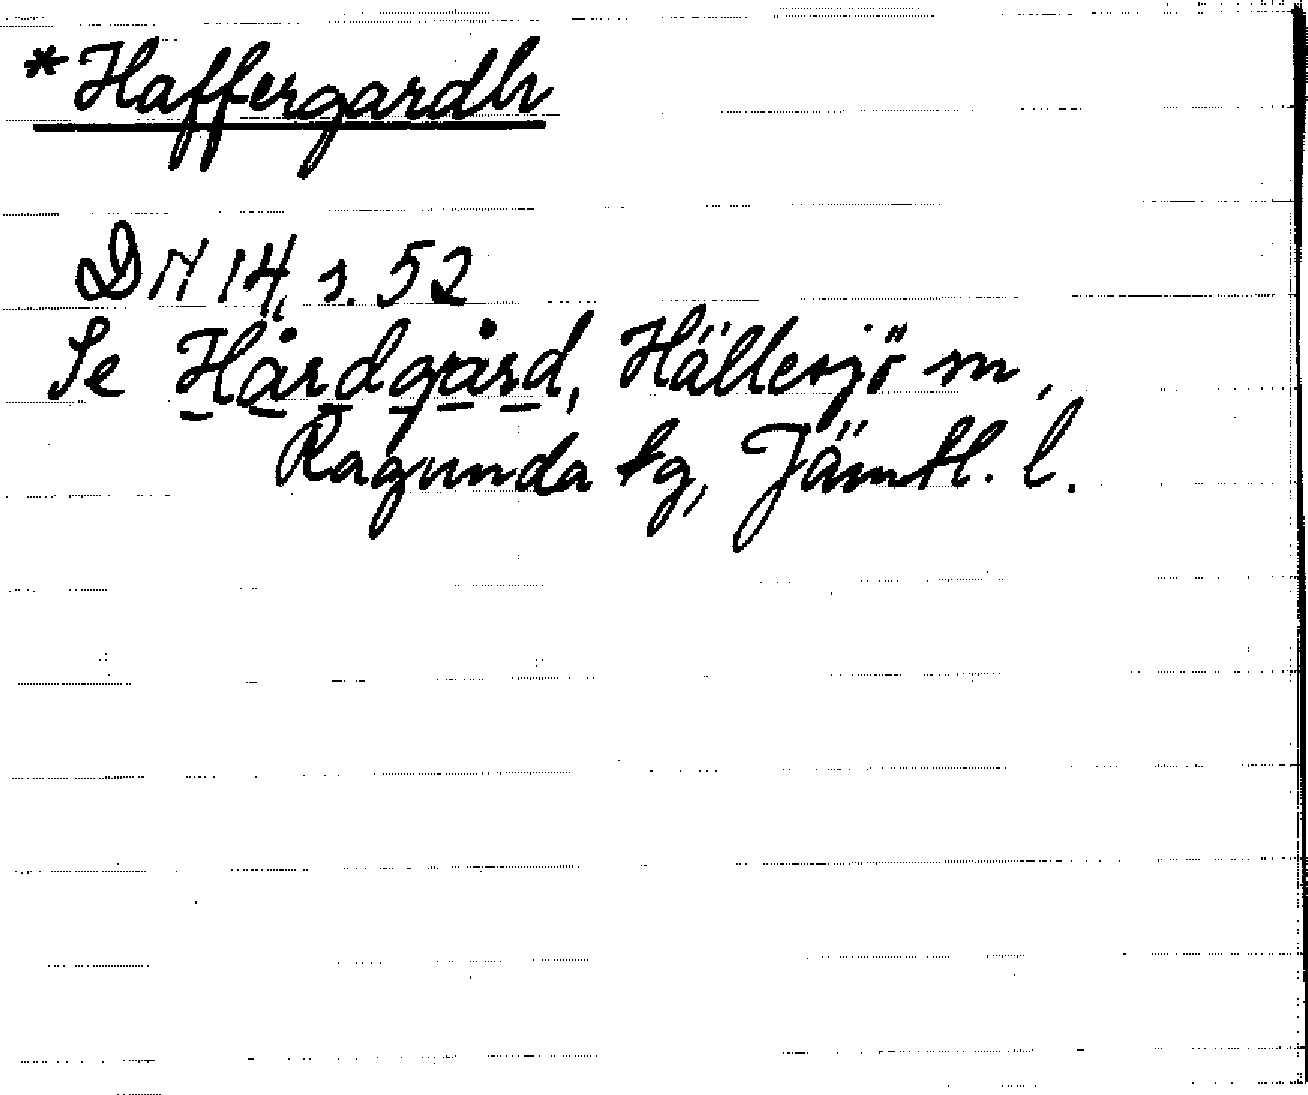 *Haffergardhr
DN 14, s. 52
Se Hårdgård, Hällesjö sn,
Ragunda tg, Jämtl. l.